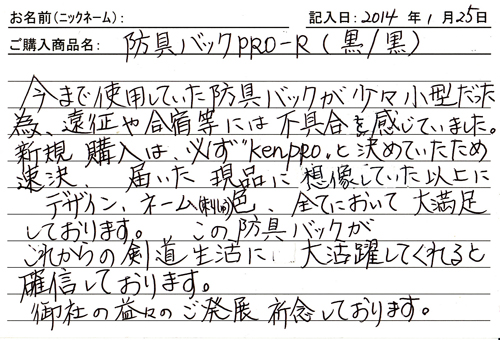 お名前(ニックネーム): 記入日: 2014 年 1 月 25日
ご購入商品名: 防具バックPRO-R (黒/黒)
今まで使用していた防具バックが少々小型だった
為、遠征や合宿等には不具合を感じていました。
新規購入は、必ず"kenpro."と決めていたため
速決、届いた現品に想像していた以上に
デザイン、ネーム(刺繍)色、全てにおいて大満足
しております。この防具バックが
これからの剣道生活に、大活躍してくれると
確信しております。
御社の益々のご発展祈念しております。